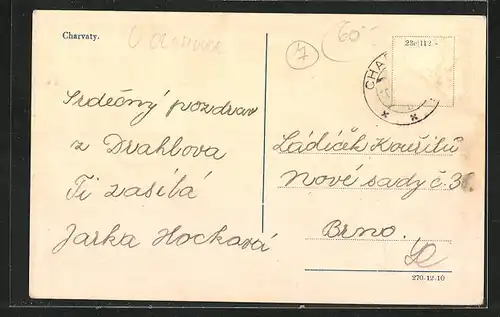 Charvaty.
U OLOMOUCE
7
60
23c|112 -
CHA
Srdečný pozdrav
z Drahlova
Ti zasílá
Jarka Hocková
Ládíček Kouřilů
Nové sady č. 31.
Brno.
270-12-10